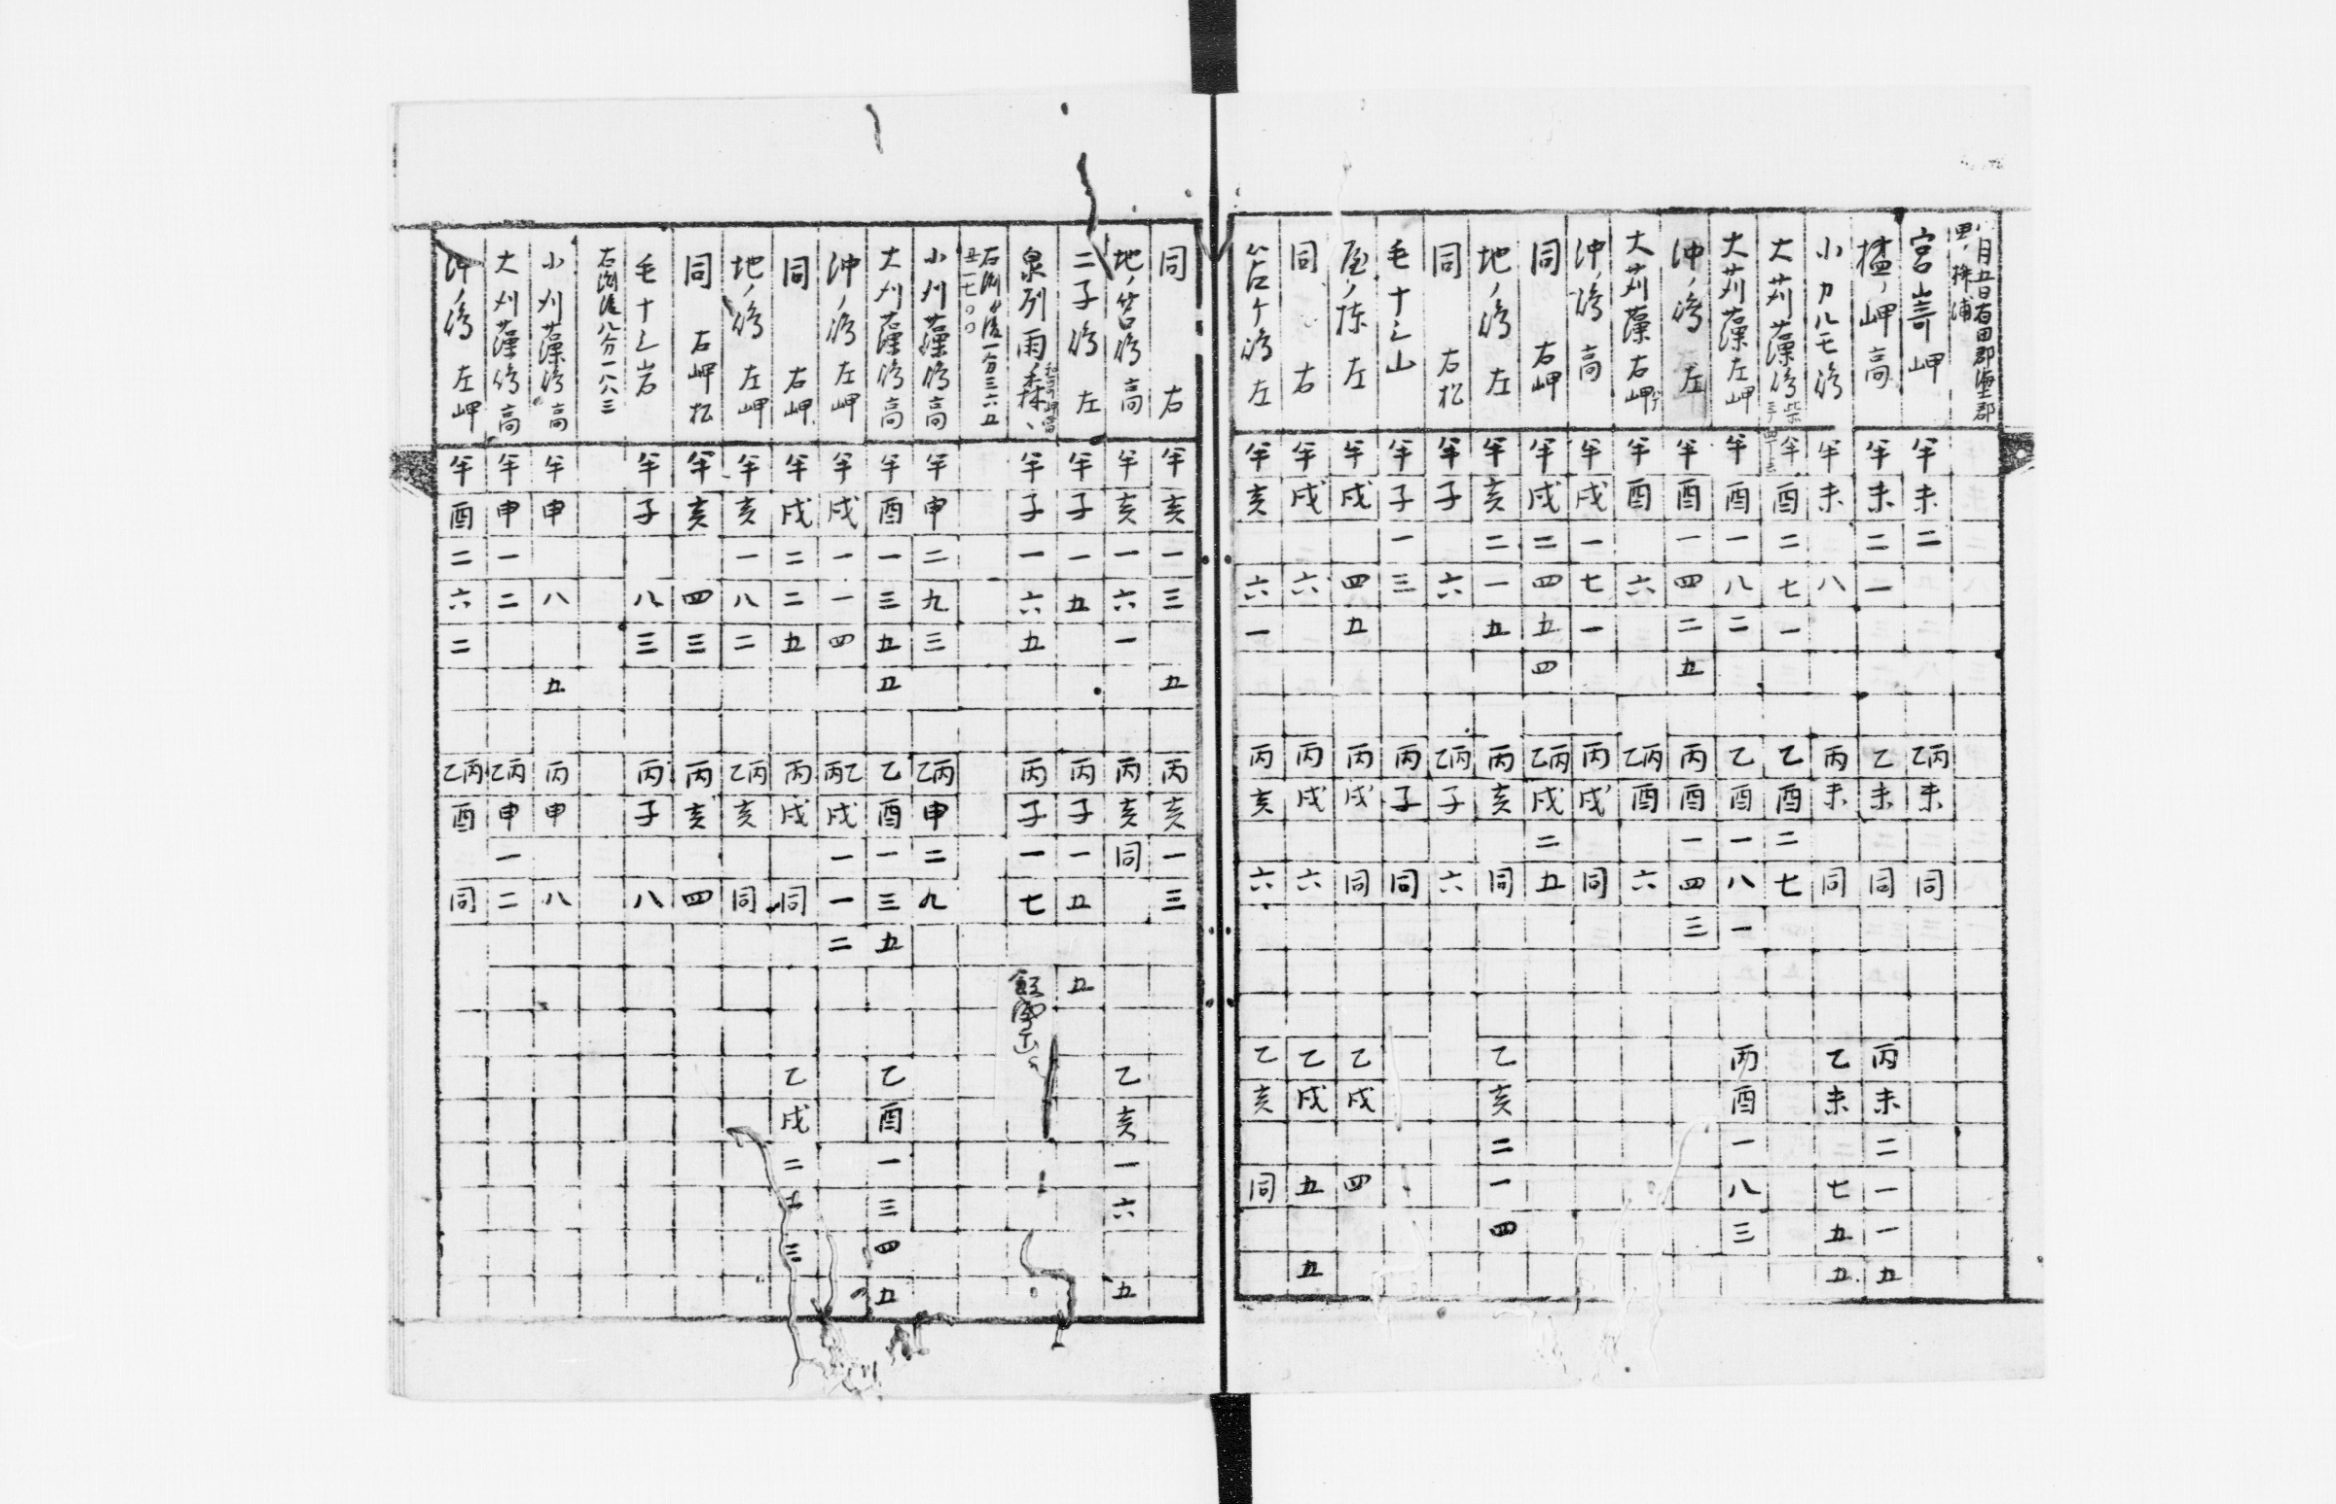 八月五日有田郡海士郡
田ノ株浦
宮﨑岬 半未二 乙丙未同
榁ノ岬高 半未二一 乙未同 丙未二一一五
小カルモ
島 半未八 丙未同 乙未七五五
大苅藻島 半酉二七一 乙酉二七
大苅藻左岬 半酉一八二 乙酉一八一 丙酉一八三
沖ノ島左 半酉一四二五 丙酉一四三
大苅藻右岬 半酉六 乙丙酉六
沖ノ島高 半戌一七一 丙戌同
同右岬 半戌二四五四 乙丙戌二五
地ノ島左 半亥二一五 丙亥同 乙亥二一四
同右松 半子六 乙丙子六
毛十ミ山 半子一三 丙子同
屋ノ棟左 半戌四五 丙戌同 乙戌四
同右 半戌六 丙戌六 乙戌五五
筥ケ島左 半亥六一 丙亥六 乙亥同
同右 半亥一三五 丙亥一三
地ノ筥島高 半亥一六一 丙亥同 乙亥一六五
二子島左 半子一五 丙子一五五
泉列雨ノ森 半子一六五 丙子一七
右測後一分三六五
丑一七〇〇
小刈藻島高 半申二九三 乙丙申二九
大刈藻島高 半酉一三五五 乙酉一三五 乙酉一三四五
沖ノ島左岬 半戌一一四 丙乙戌一一二
同右岬 半戌二二五 丙戌同 乙戌二
地ノ島左岬 半亥一八二 乙丙亥同
同右岬松 半亥四三 丙亥四
毛十ミ岩 半子八三 丙子八
右測後八分一八三
小刈藻島高 半申八五 丙申八
大刈藻島高 半申一二 乙丙申一二
沖ノ島左岬 半酉二六二 乙丙酉同